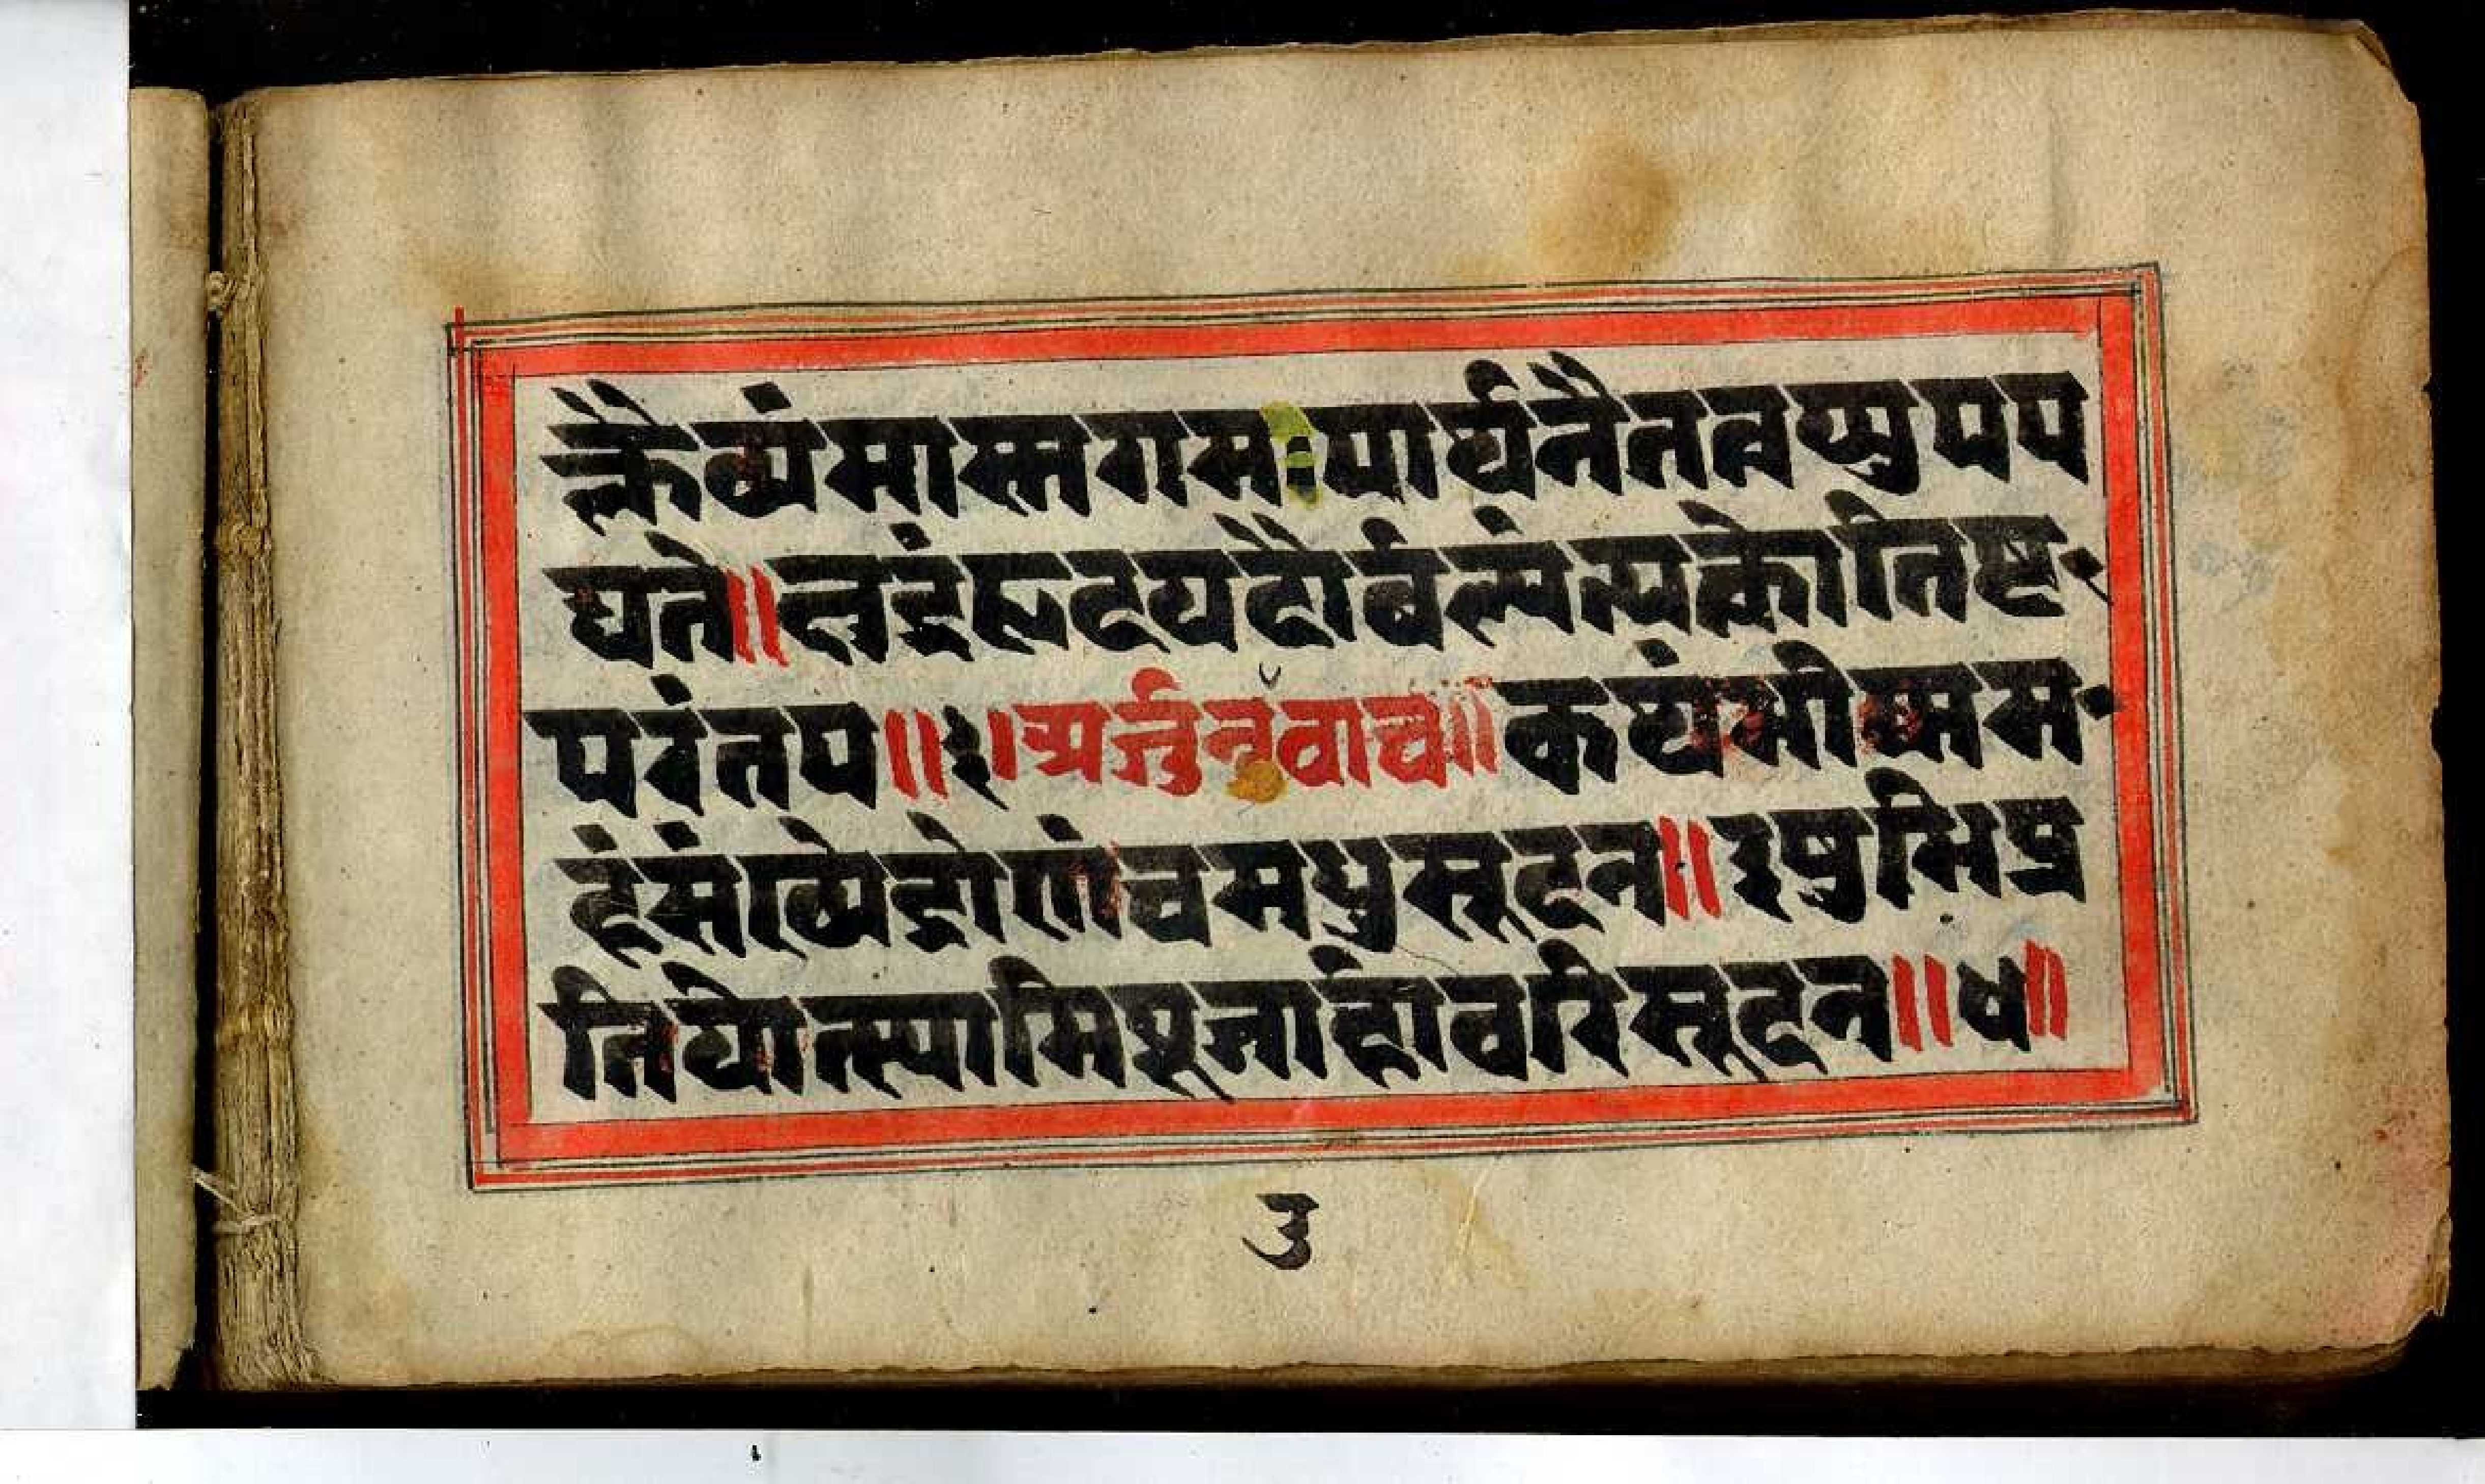 क्लैब्यंमास्मगमःपार्थनैतत्त्वय्युपप
द्यते॥क्षुद्रंहृदयदौर्बल्यंत्यक्त्वोतिष्ट
परंतप॥३॥अर्जुनउवाच॥कथंभीष्मम
हंसंख्येद्रोणंचमधुसूदन॥इषुभिःप्र
तियोत्स्यामिपूजार्हावरिसूदन॥४॥
३